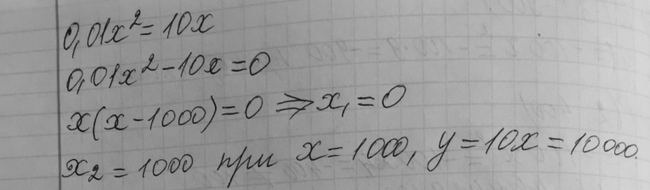 0,01x² = 10x
0,01x² - 10x = 0
x(x - 1000) = 0 ⇒ x₁ = 0
x₂ = 1000 при x = 1000, y = 10x = 10000.